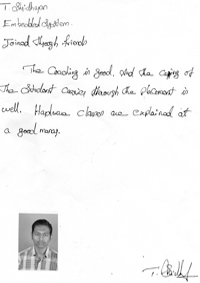 T
Embedded System.
Joined through friends
The Coaching is good. And the caring of
the Student Carrier through the placement is
well. Hardware classes are explained at
a good manar.
T.